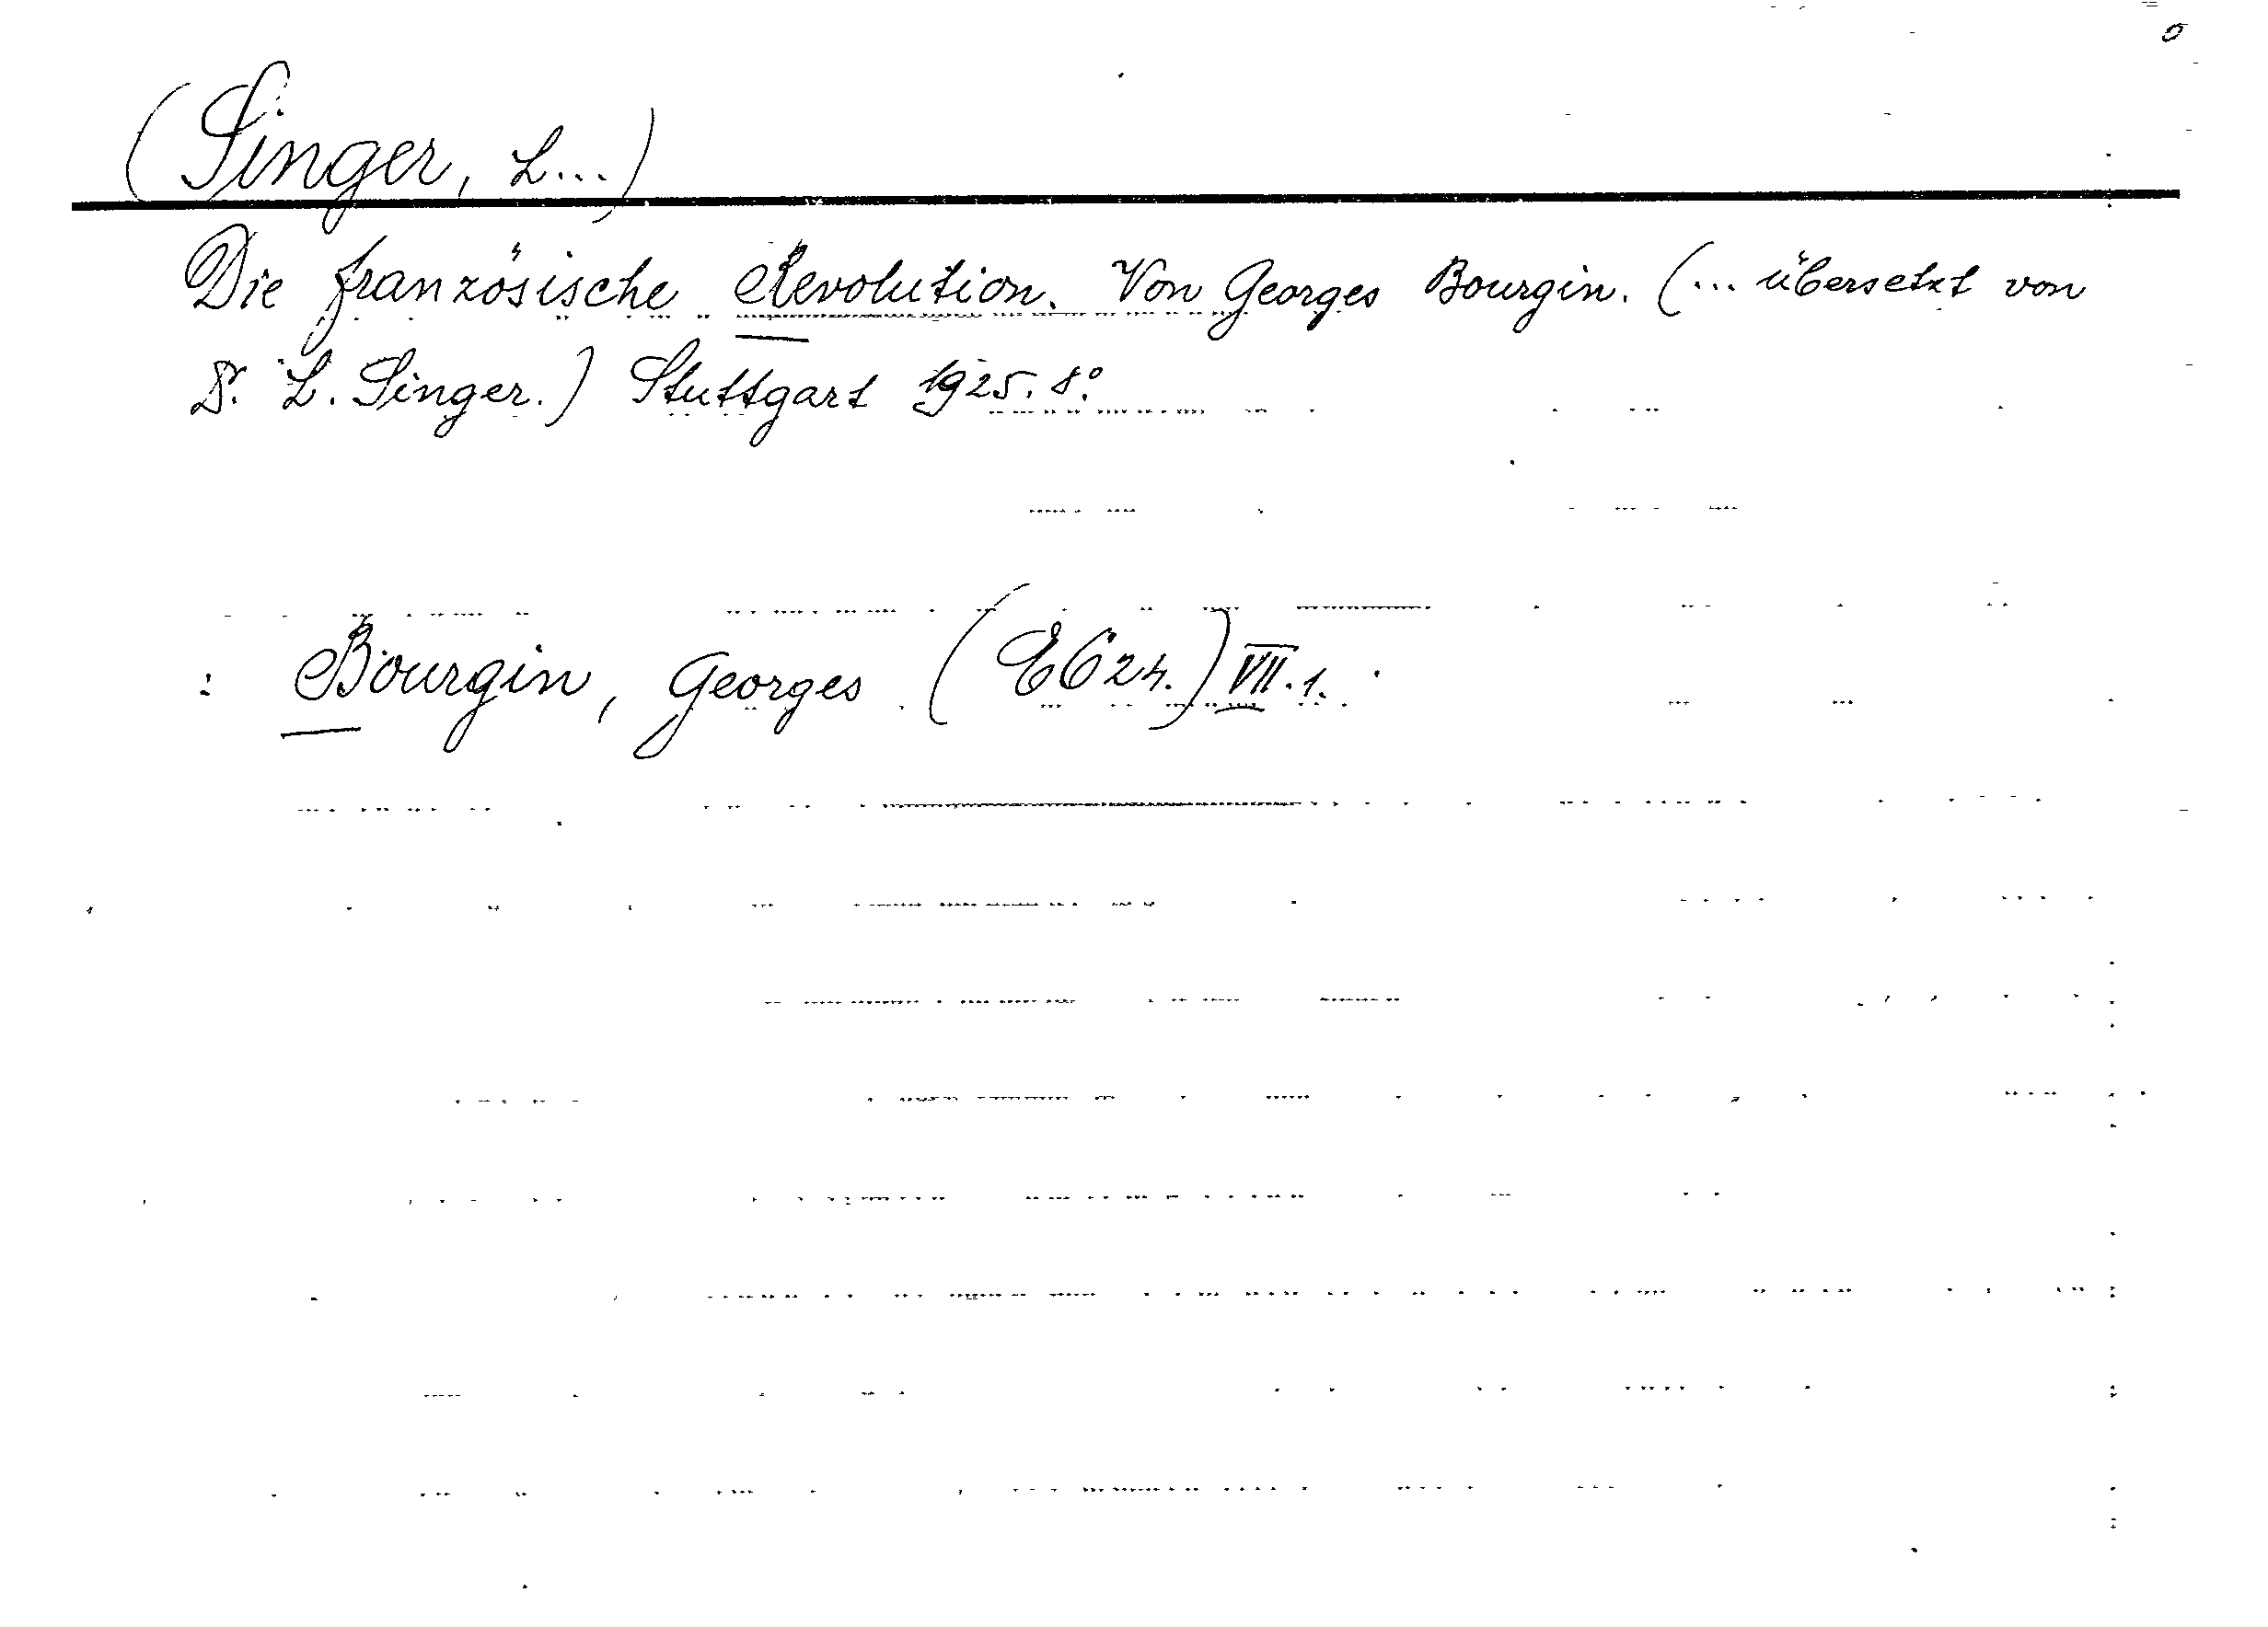 (Singer, L...)
Die französische Revolution. Von Georges Bourgin. (... übersetzt von
Dr. L. Singer.) Stuttgart 1925. 8º.
: Bourgin, Georges (E624.) VII.1.